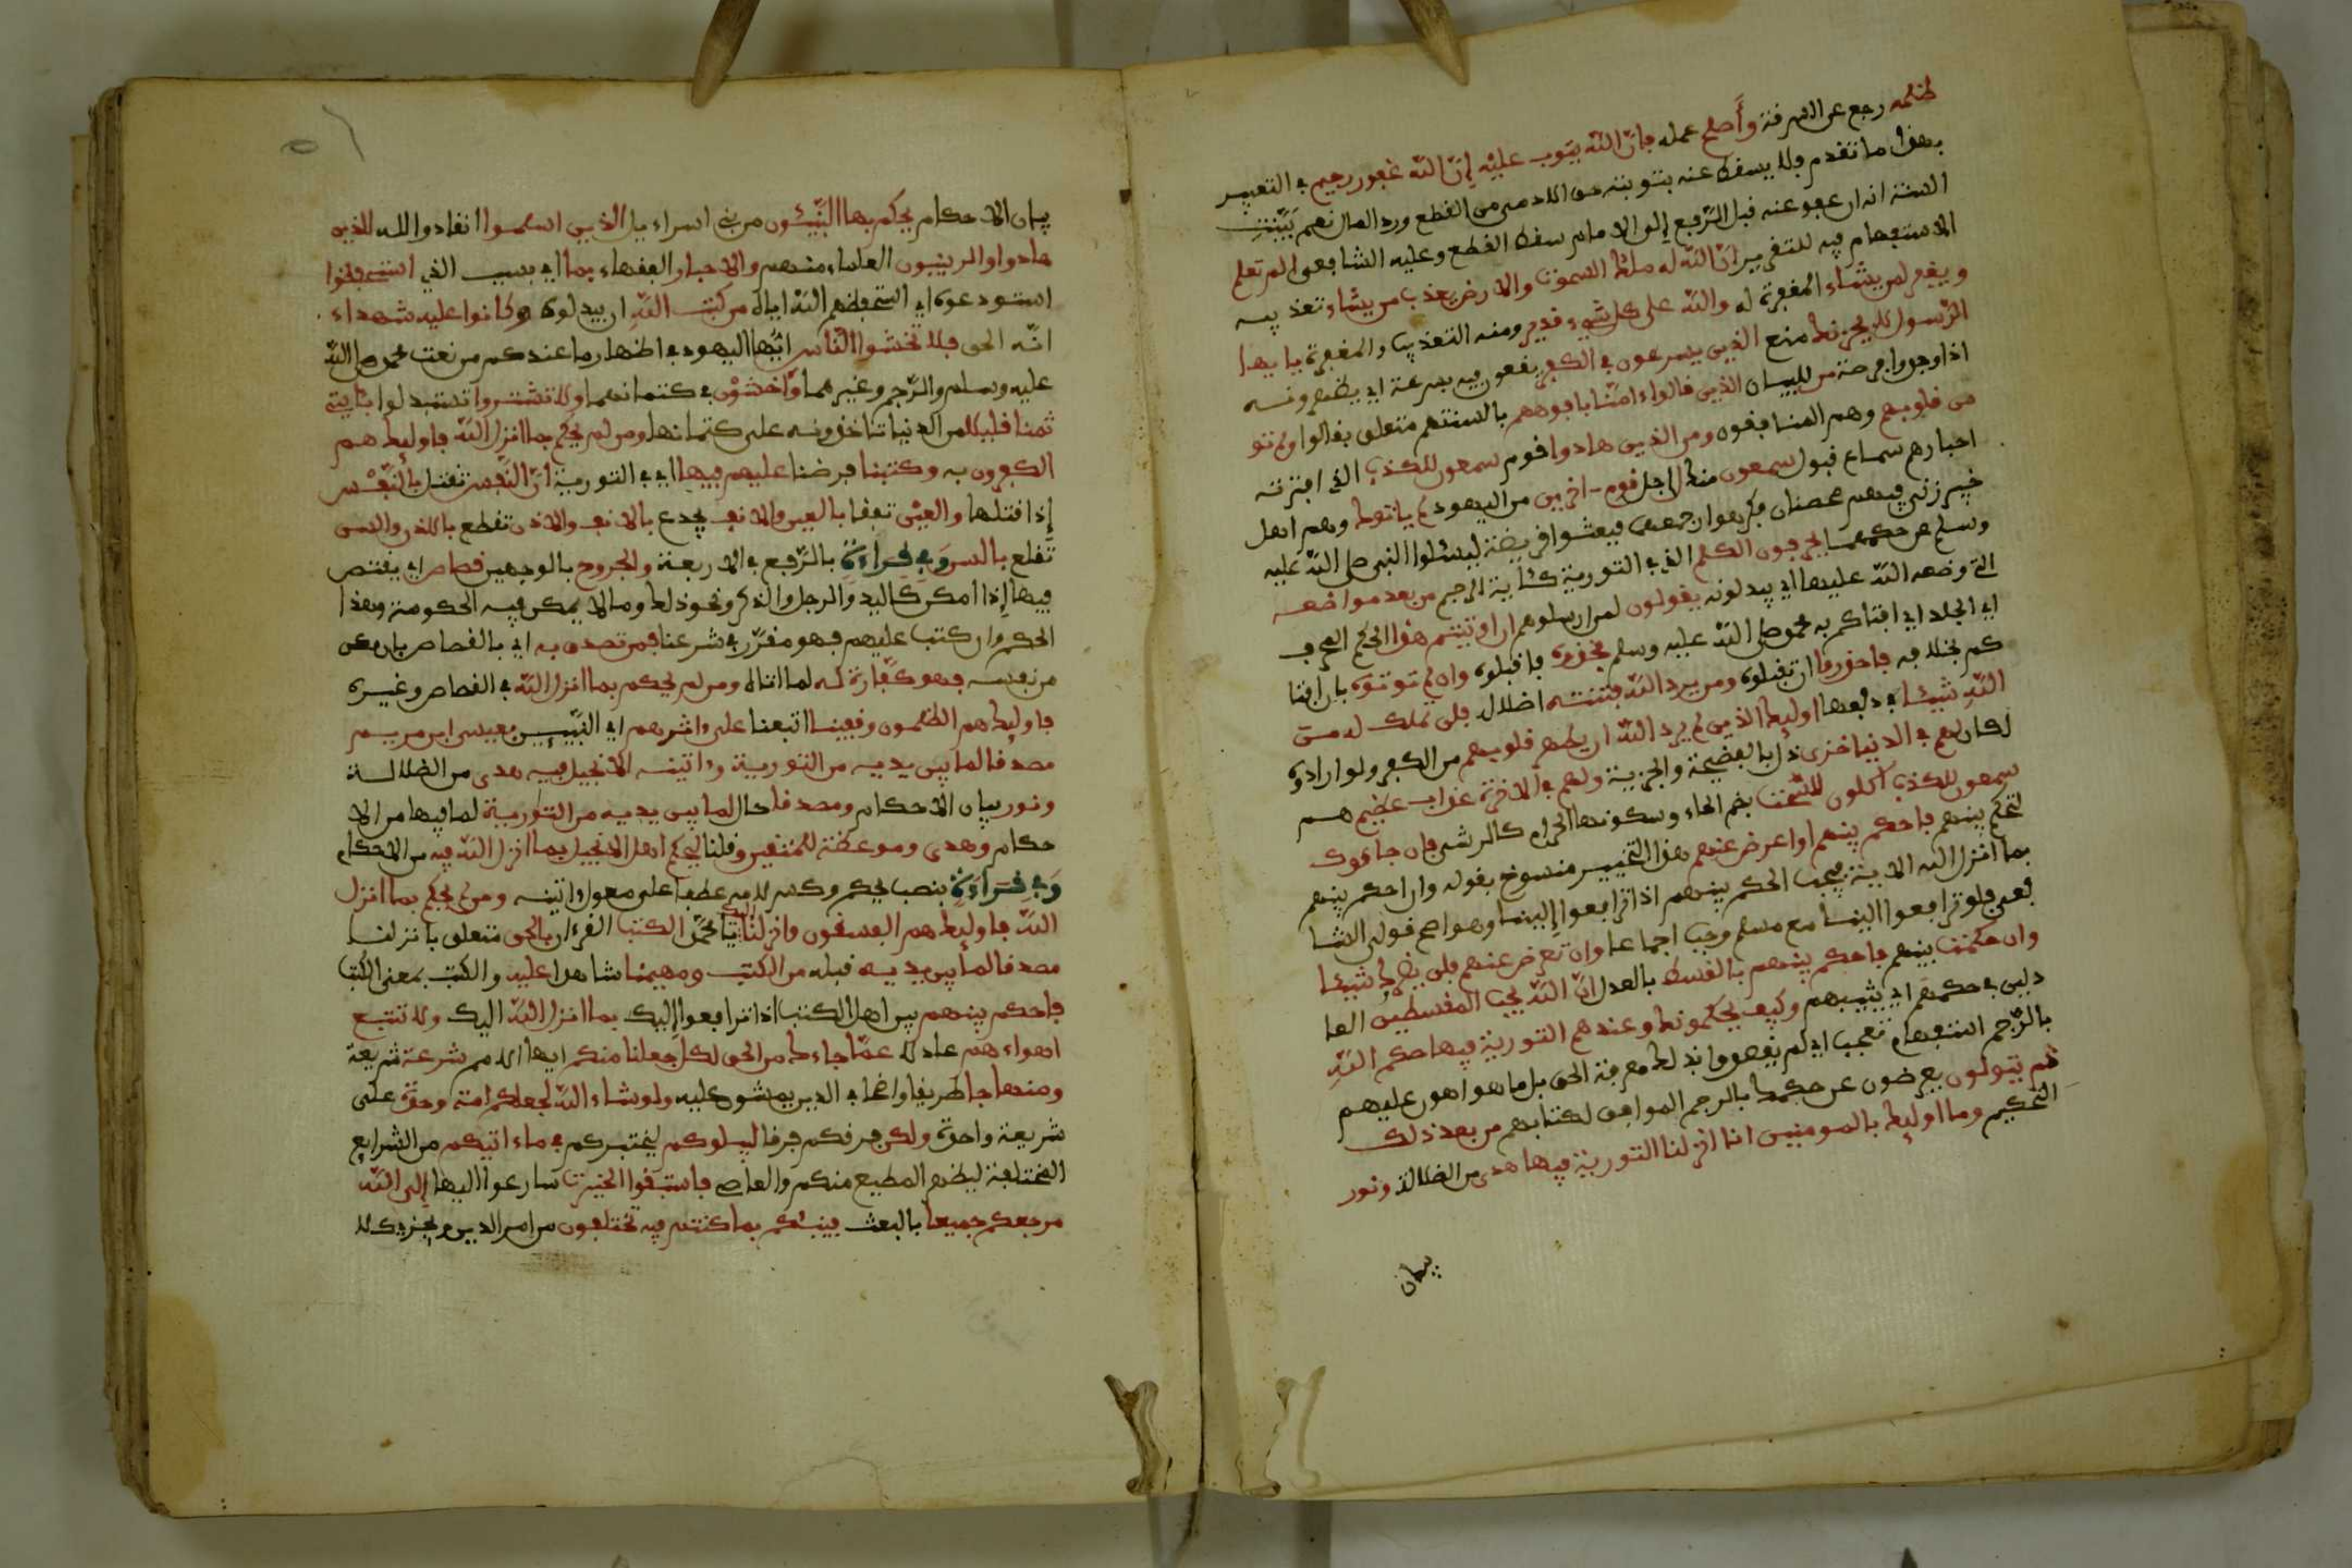 ظلمه رجع عن السرقة وأصلح عمله فان اللّه يتوب عليه إنّ اللّه غفور رحيم في التعبير
بهذا ما تقدم فلا يسقط عنه بتوبته حق الادمى من القطع ورد المال نعم بيّنت
السنة انه ان عفى عنه قبل الرّفع إلى الامام سقط القطع وعليه الشافعى الم تعلم
الاستفهام فيه للتقرير انّ اللّه له ملك السموت والارض يعذب من يشاء تعذيبه
ويغفر لمن يشاء المغفرة له واللّه على كل شىء قدير ومنه التعذيب والمغفرة يا يها
الرّسول لا يحزنك صنع الذين يسرعون في الكفر يقعون فيه بسرعة اي يظهرونه
اذا وجدوا فرصة من للبيان الذين قالوا ءامنّا بافوههم بالسنتهم متعلق بقالوا ولم تو
من قلوبهم وهم المنافقون ومن الذين هادوا قوم سمعون للكذب الذي افترته
احبارهم سماع قبول سمعون منك لاجل قوم ءاخرين من اليهود لم ياتوك وهم اهل
خيبر زنى فيهم محصنان فكرهوا رجمهما فبعثوا قريضة ليسئلوا النبى صلى اللّه عليه
وسلم عن حكمهما يحرفون الكلم الذي في التورية كئاية الرجم من بعد مواضعه
التي وضعه اللّه عليها اي يبدلونه يقولون لمن ارسلوهم ان اوتيتم هذا الحكم المحرف
اي الجلد اي افتاكم به محمد صلى اللّه عليه وسلم فخذوه فاقبلوه وان لم توتوه بان افتا
كم بخلافه فاحذروا ان تقبلوه ومن يرد اللّه فتنته اضلال فلن تملك له من
اللّه شيئا في دفعها اوليك الذين لم يرد اللّه ان يطهر قلوبهم من الكفر ولو ارادوه
لكان لهم في الدنيا خزى ذل بالفضيحة والجزية ولهم في الاخرة عذاب عظيم هم
سمعون للكذب اكلون للسّحت بضم الحاء وسكونها الحرام كالرشى فان جاءوك
لتحكم بينهم فاحكم بينهم او اعرض عنهم هذا التخيير منسوخ بقوله وان احكم بينهم
بما انزل اللّه الاية فيجب الحكم بينهم اذا ترافعوا إلينا وهو اصح قولى الشا
فعى فلو ترافعوا الينا مع مسلم وجب اجماعا وان تعرض عنهم فلن يضروك شيئا
وان حكمت بينهم فاحكم بينهم بالقسط بالعدل انّ اللّه يحب المقسطين العا
دلين في حكمهم اي يثيبهم وكيف يحكمونك وعندهم التورية فيها حكم اللّه
بالرّجم استفهام تعجب اي لم يقصدوا بذلك معرفة الحق بل ما هو اهون عليهم
ثم يتولون يعرضون عن حكمك بالرجم الموافق لكتابهم من بعد ذلك
التحكيم وما اوليك بالمومنين انا انزلنا التورية فيها هدى من الضلالة ونور
بيان
بيان الاحكام يحكم بها النّبيـٔون من بني اسراءيل الذين اسلموا انقادوا لله للذين
هادوا والربنيون العلماء منهم والاحبار الفقهاء بما اي بسبب الذي استحفظوا
استودعوه اي استحفظهم اللّه اياه من كتب اللّه ان يبدلوه وكانوا عليه شهداء
انّه الحق فلا تخشوا النّاس ايّها اليهود في اظهار ما عندكم من نعت محمد صلى اللّه
عليه وسلم والرّجم وغيرهما وٱخشوْن في كتمانهما ولا تشتروا تستبدلوا بئايتى
ثمنا قليلا من الدنيا تاخذونه على كتمانها ومن لم يحكم بما انزل اللّه فاوليك هم
الكفرون به وكتبنا فرضنا عليهم فيها اي في التورية انّ النّفس تقتل بالنّفس
إذا قتلها والعين تفقا بالعين والانف يجدع بالانف والاذن تقطع بالاذن والسن
تقلع بالسن وفي قراءة بالرّفع في الاربعة والجروح بالوجهين قصاص اي يقتص
فيها إذا امكن كاليد والرجل والذكر ونحو ذلك وما لا يمكن فيه الحكومة وهذا
الحكم وان كتب عليهم فهو مقرّر في شرعنا فمن تصدق به اي بالقصاص بان مكن
من نفسه فهو كفّارة له لما اتاه ومن لم يحكم بما انزل اللّه في القصاص وغيره
فاوليك هم الظلمون وقفينا اتبعنا على ءاثرهم اي النّبيين بعيسى ابن مريم
مصدقا لما بين يديه من التورية وءاتينه الانجيل فيه هدى من الضلالة
ونور بيان الاحكام ومصدقا حال لما بين يديه من التورية لما فيها من الا
حكام وهدى وموعظة للمتقين وقلنا ليحكم اهل الانجيل بما انزل اللّه فيه من الاحكام
وفي قراءة بنصب يحكم وكسر لامه عطفا على معمول ءاتينه ومن لم يحكم بما انزل
اللّه فاوليك هم الفسقون وانزلنا اليك يا محمّد الكتب القرءان بالحق متعلق بانزلنا
مصدقا لما بين يديه قبله من الكتب ومهيمنا شاهدا عليه والكتب بمعنى الكتب
فاحكم بينهم بين اهل الكتب اذا ترافعوا إليك بما انزل اللّه اليك ولا تتبع
اهواءهم عادلا عمّا جاءك من الحق لكل جعلنا منكم ايها الامم شرعة شريعة
ومنهاجا طريقا واضحا في الدين يمشون عليه ولو شاء اللّه لجعلكم امة وحدة على
شريعة واحدة ولكن فرقكم فرقا ليبلوكم ليختبركم في ماء اتيكم من الشرايع
المختلفة ليظهر المطيع منكم والعاصى فاستبقوا الخيرت سارعوا اليها إلى اللّه
مرجعكم جميعا بالبعث فينبئكم بما كنتم فيه تختلفون من امر الدين ويجزى كلا